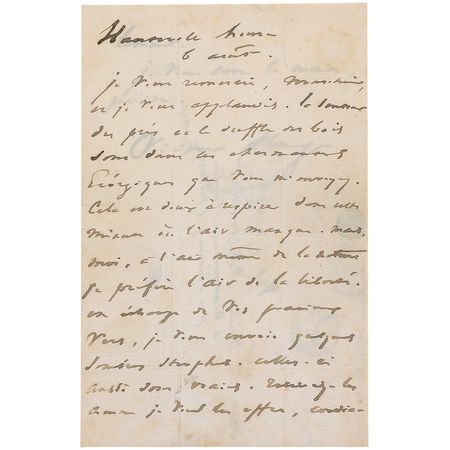 Hauteville house
6 août.
je vous remercie, Monsieur,
et je vous applaudis. la
des prés et le souffle des bois
sont dans les charmantes
Géorgiques que vous m'envoyez.
Cela est doux à respirer dans cette
où l'air manque. mais,
moi, à l'air même de la nature
je préfère l'air de la liberté.
en échange de vos gracieux
vers, je vous envoie quelques
sombres strophes. celles-ci
aussi sont vraies. recevez-les
comme je vous les offre, cordiale-